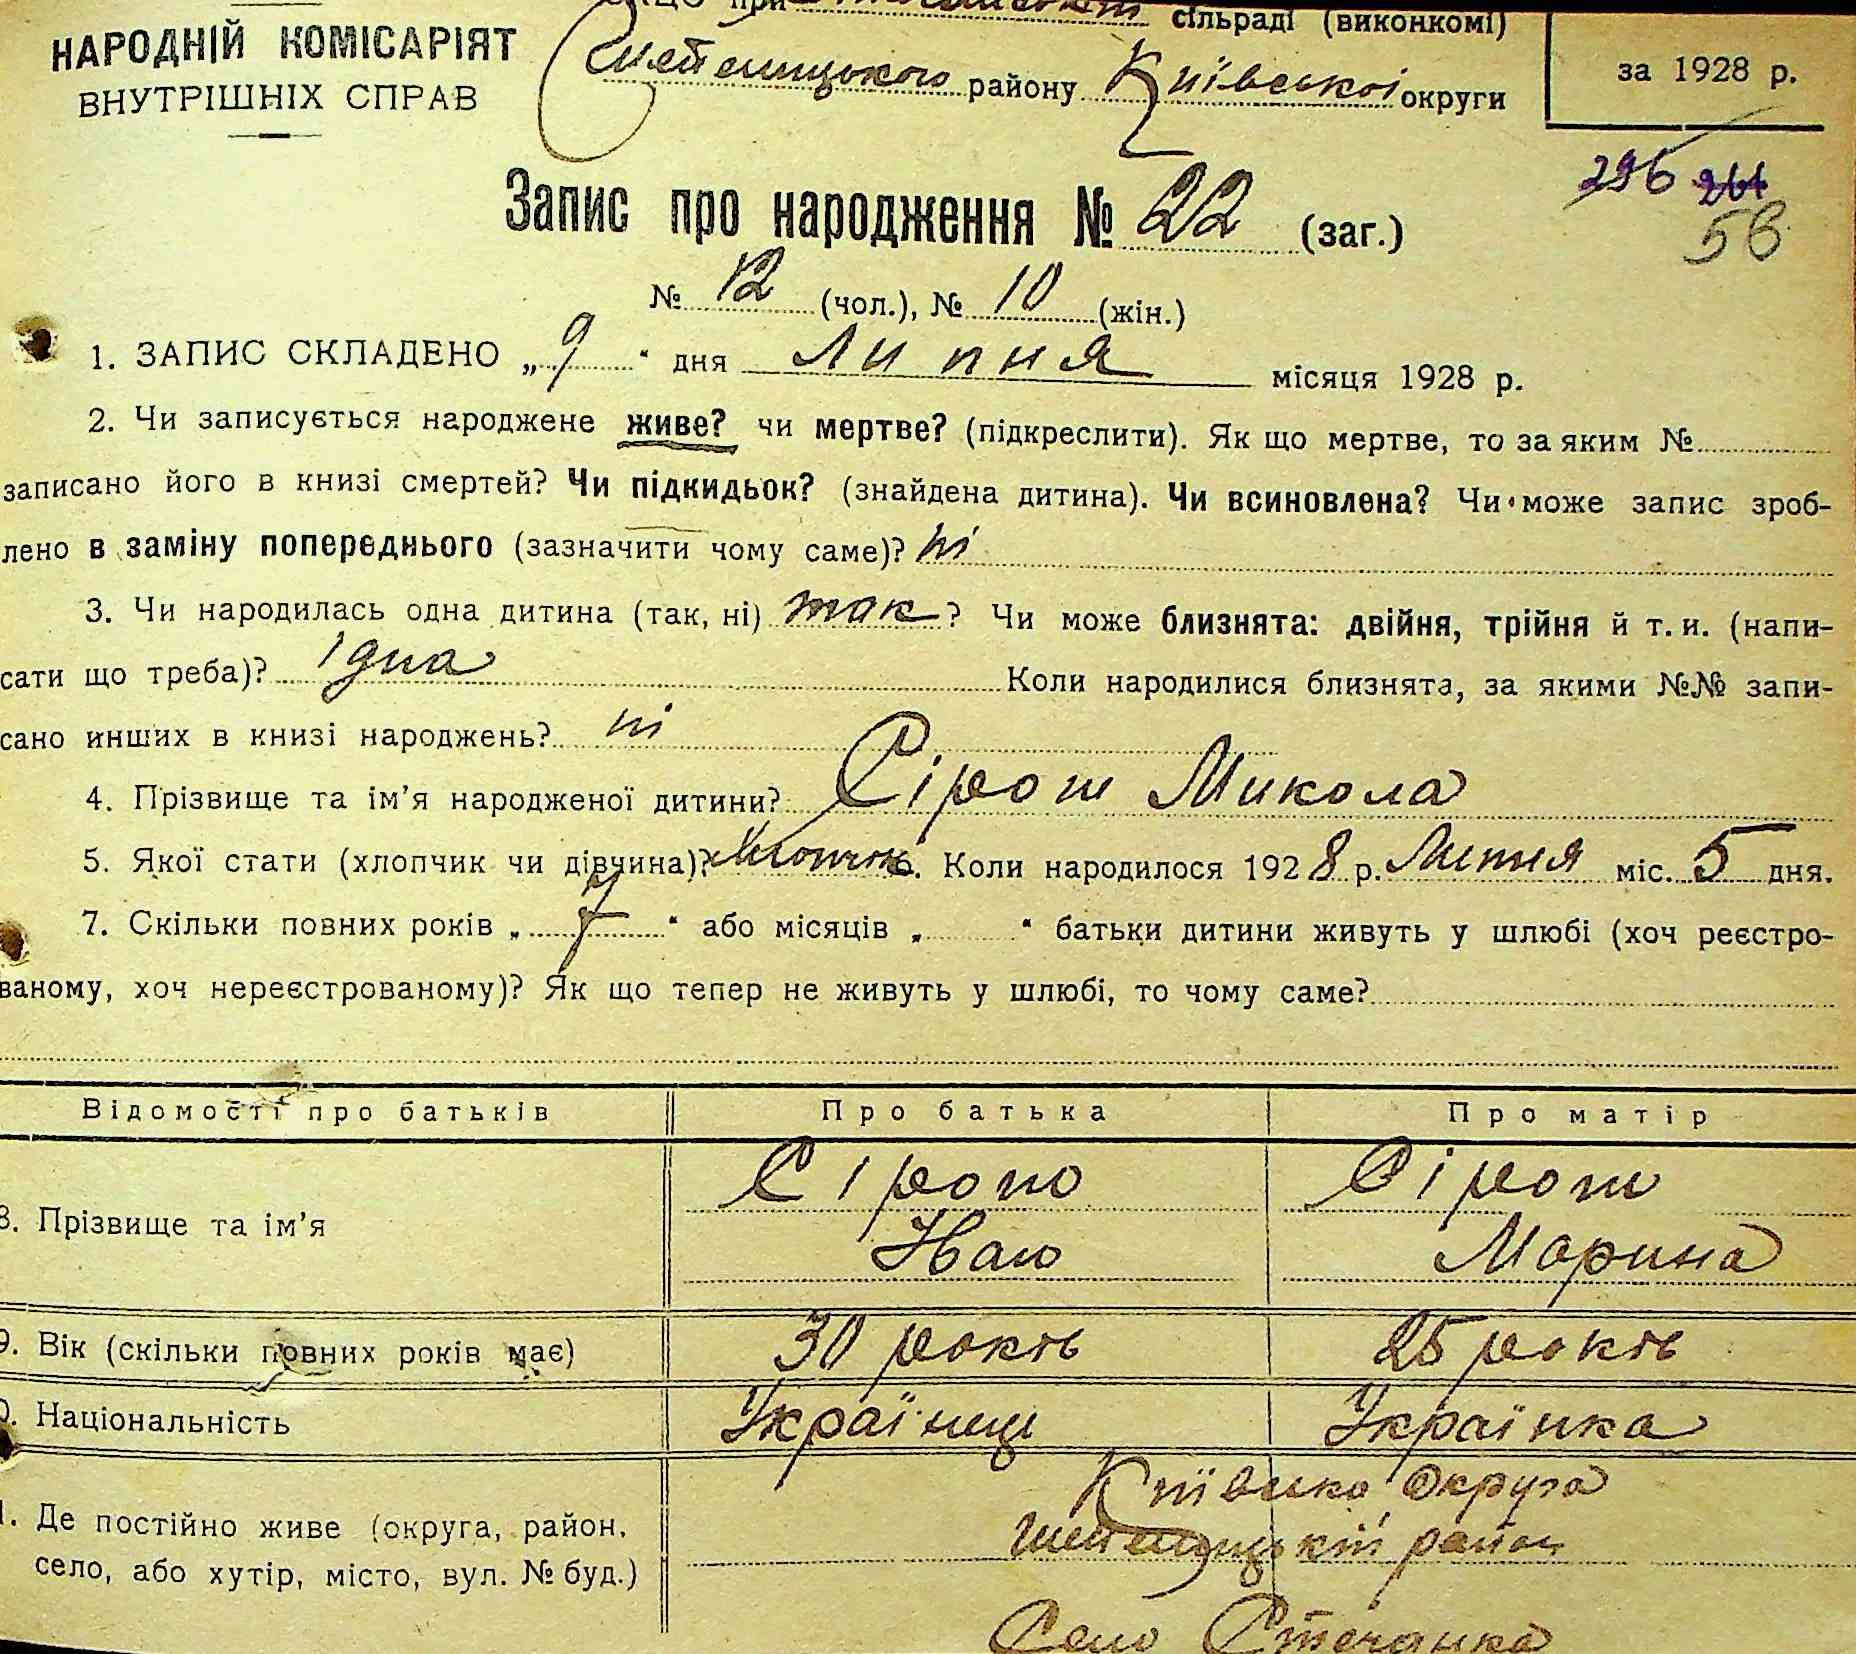 НАРОДНІЙ КОМІСАРІЯТ
ВНУТРІШНІХ СПРАВ
при сільраді (виконкомі)
району Київської округи
за 1928 р.
296 264
56
Запис про народження № 22 (заг.)
№ 12 (чол.), № 10 (жін.)
1. ЗАПИС СКЛАДЕНО „9“ дня липня місяця 1928 р.
2. Чи записується народжене живе? чи мертве? (підкреслити). Як що мертве, то за яким №
записано його в книзі смертей? Чи підкидьок? (знайдена дитина). Чи всиновлена? Чи може запис зроб-
лено в заміну попереднього (зазначити чому саме)? ні
3. Чи народилась одна дитина (так, ні) так? Чи може близнята: двійня, трійня й т. и. (напи-
сати що треба)? 1 дна Коли народилися близнята, за якими №№ запи-
сано инших в книзі народжень? ні
4. Прізвище та ім'я народженої дитини? Сірот Микола
5. Якої стати (хлопчик чи дівчина)? Коли народилося 1928 р. Липня міс. 5 дня.
7. Скільки повних років „7“ або місяців „ “ батьки дитини живуть у шлюбі (хоч реєстро-
ваному, хоч нереєстрованому)? Як що тепер не живуть у шлюбі, то чому саме?
Відомості про батьків Про батька Про матір
8. Прізвище та ім'я Сірот Сірот
Марина
9. Вік (скільки повних років має) 30 років 25 років
0. Національність Українец Українка
1. Де постійно живе (округа, район,
село, або хутір, місто, вул. № буд.)
округа
район
Село Стечанка